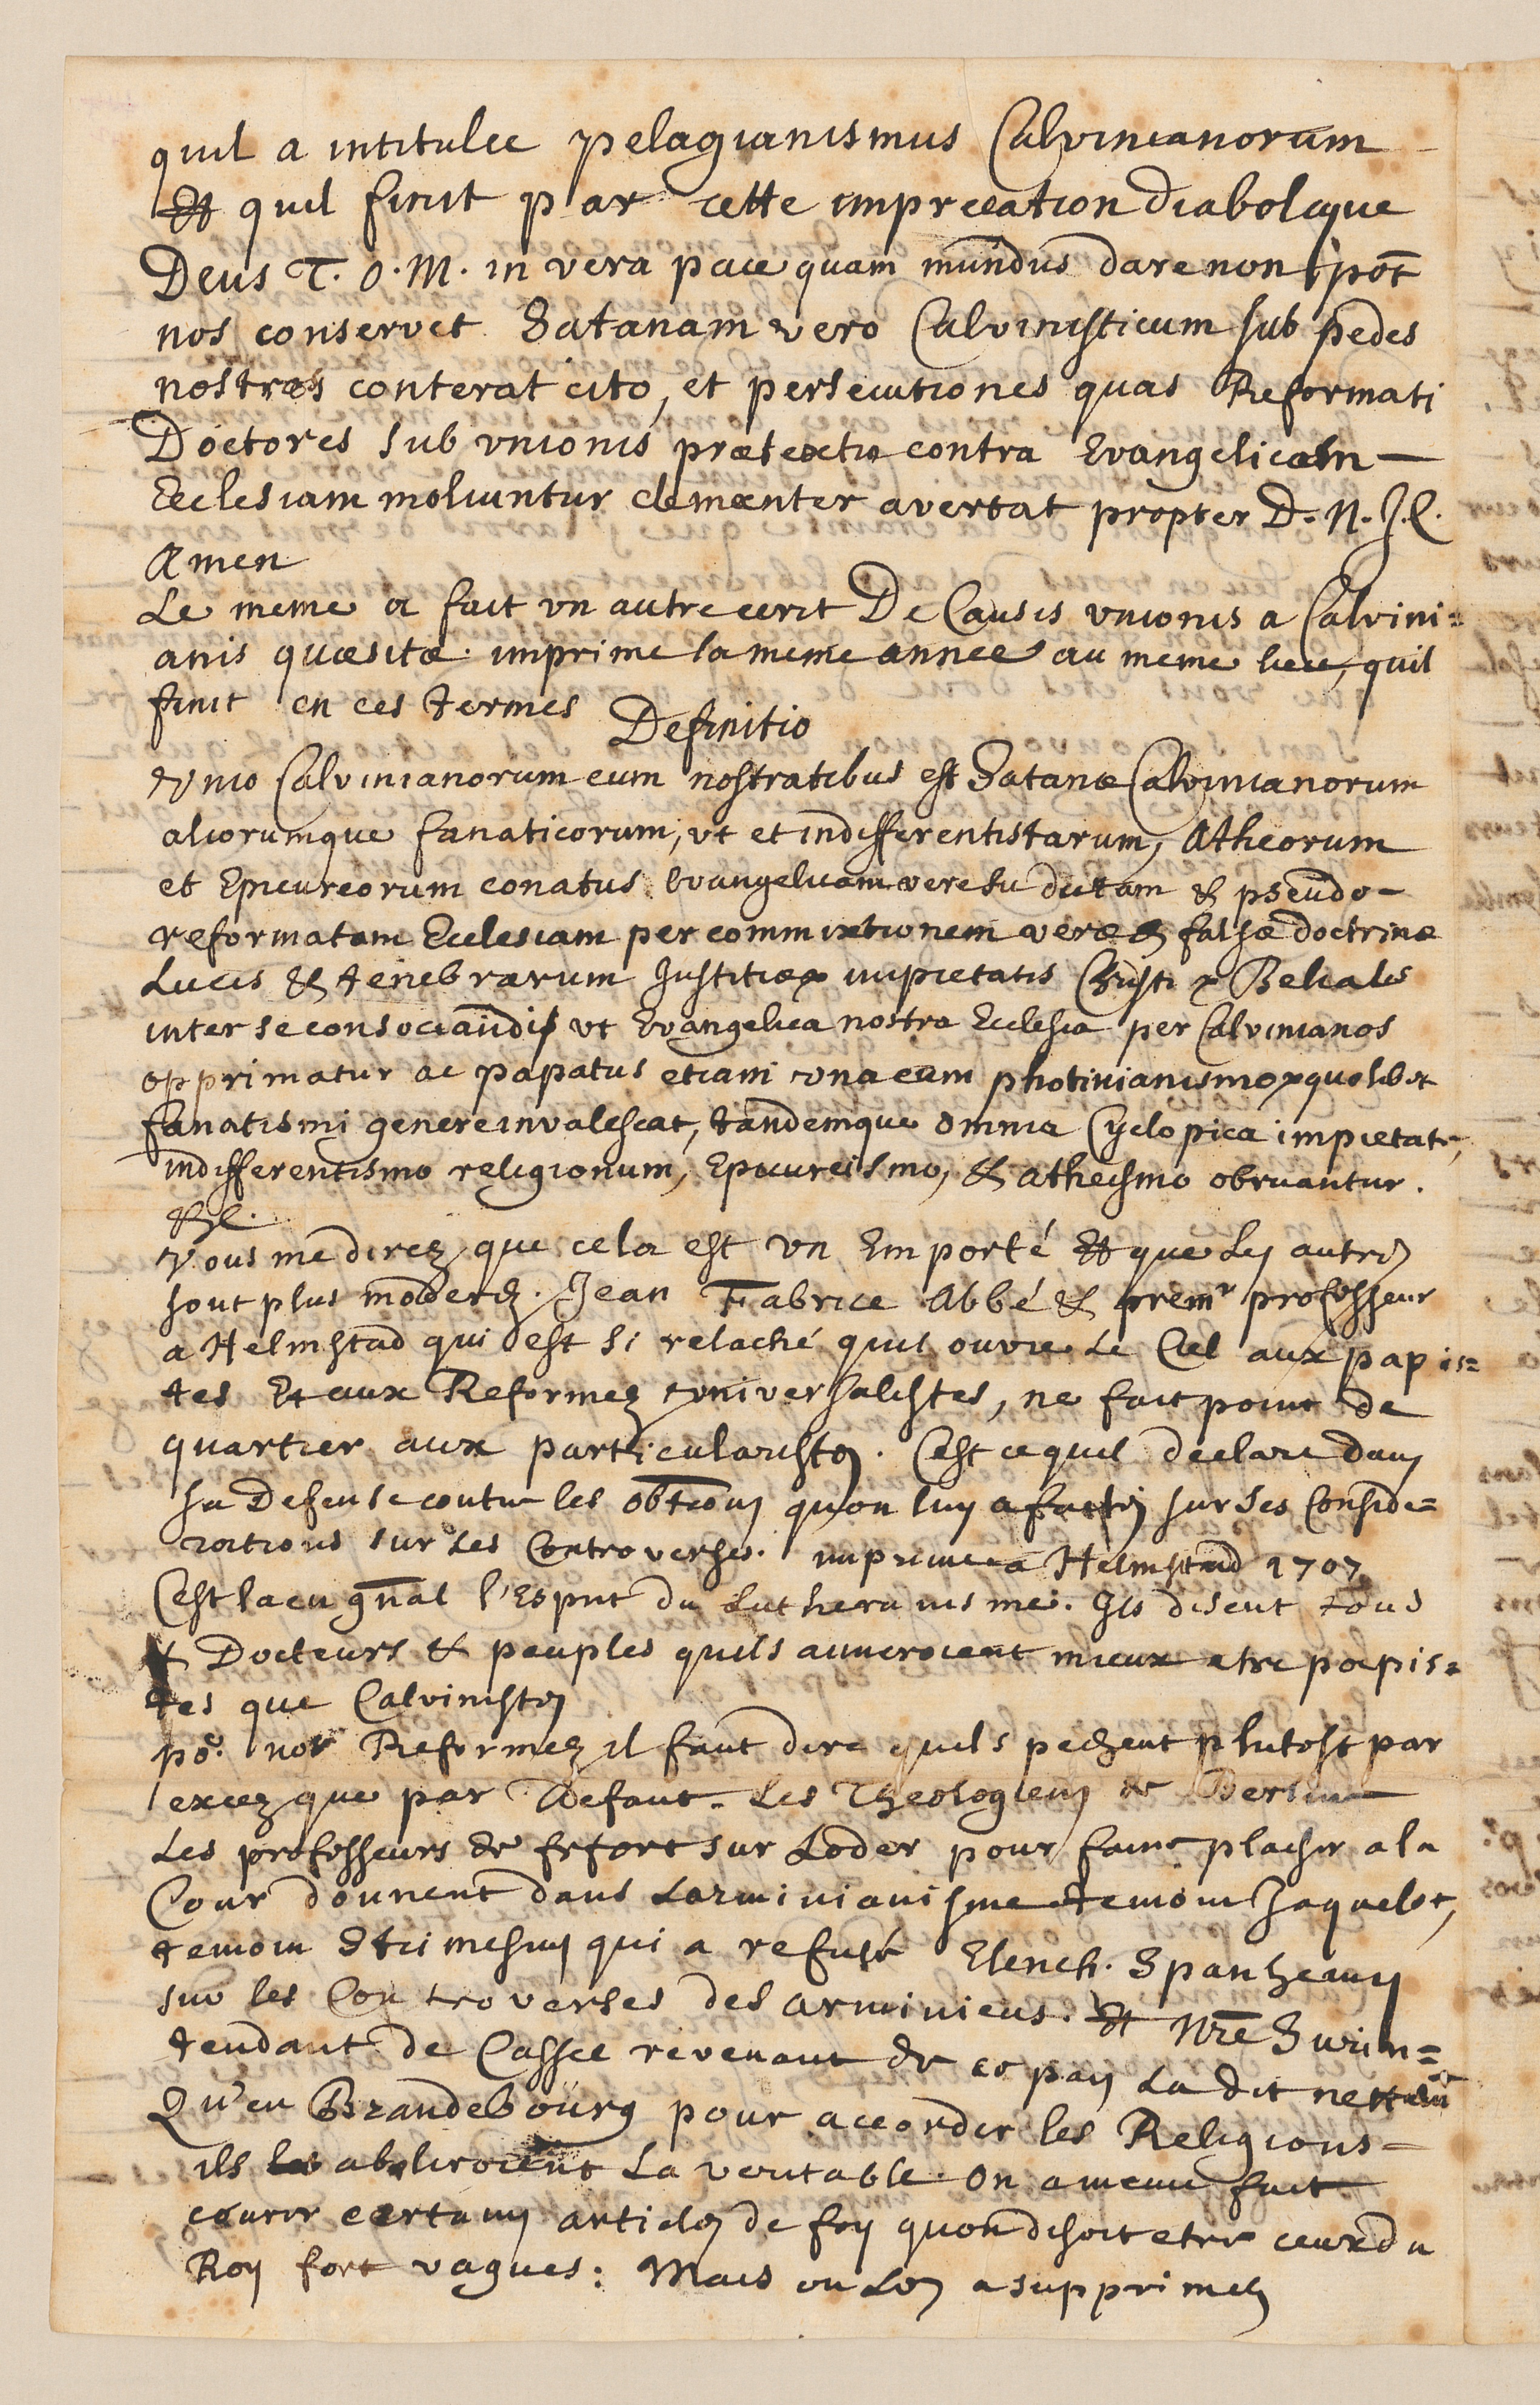 quil a intitulee pelagianismus Calvinianorum
Et quil finit par cette imprecation diabolique
Deus T. O. M. in vera pace quam mundus dare non pot
nos conservet Satanam vero Calvinisticum sub pedes
nostros conterat cito, et persecutiones quas Reformati
Doctores sub vnionis prætextu contra Evangelicam
Ecclesiam moliuntur clementer avertat propter D. N. J. C.
Amen
Le meme a fait vn autre ecrit De Causis vnionis a Calvini=
anis quæsitæ. imprime la meme annee au meme lieu, quil
finit en ces termes
Definitio
Vnio Calvinianorum cum nostratibus est Satanæ Calvinianorum
aliorumque fanaticorum, vt et indifferentistarum, Atheorum
et Epicureorum conatus Evangelicam vere su dictam & pseudo-
reformatam Ecclesiam per commixtionem veræ & falsæ doctrinæ
Lucis & tenebrarum Justitiæ & impietatis Christi & Belialis
inter se consociandi vt Evangelica nostra Ecclesia per Calvinianos
opprimatur ac papatus etiam vna cum photinianismo & quolibet
fanatismi genere invalescat, tandemque omnia Cyclopica impietate,
indifferentismo religionum, Epicureismo, & atheismo obruantur.
&c.
Vous me direz que cela est vn Emporté Et que les autres
sont plus moderez. Jean Fabrice Abbé & premr professeur
a Helmstad qui est si relaché quil ouvre le Ciel aux papis=
tes Et aux Reformez vniversalistes, ne fait point de
quartier aux particularistes. Cest ce quil declare dans
sa Defense contre les obtions quon luy a faites sur ses Conside=
rations sur les Controverses. imprimee a Helmstad 1707
Cest la en gnal l'Esprit du Lutheranisme. Ils disent tous
& Docteurs & peuples quils aimeroient mieux etre papis=
tes que Calvinistes
po. nos Reformez il faut dire quils pechent plutost par
excez que par Defaut. Les Theologiens de Berlin
Les professeurs de frfort sur Loder pour faire plaisir a la
Cour donnent dans Larminianisme temoin Jaquelot,
temoin Strimesius qui a refusé Elench. Spanhemy
sur les Controverses des arminiens. Et Nre Surin=
tendant de Cassel revenant de ce pays La dit nettemt
Qu'en Brandebourg pour accorder les Religions
ils aboliroient La veritable. On a meme fait
courir certains articles de foy quon disoit etre ceux du
Roy fort vagues: Mais on Les a supprimez